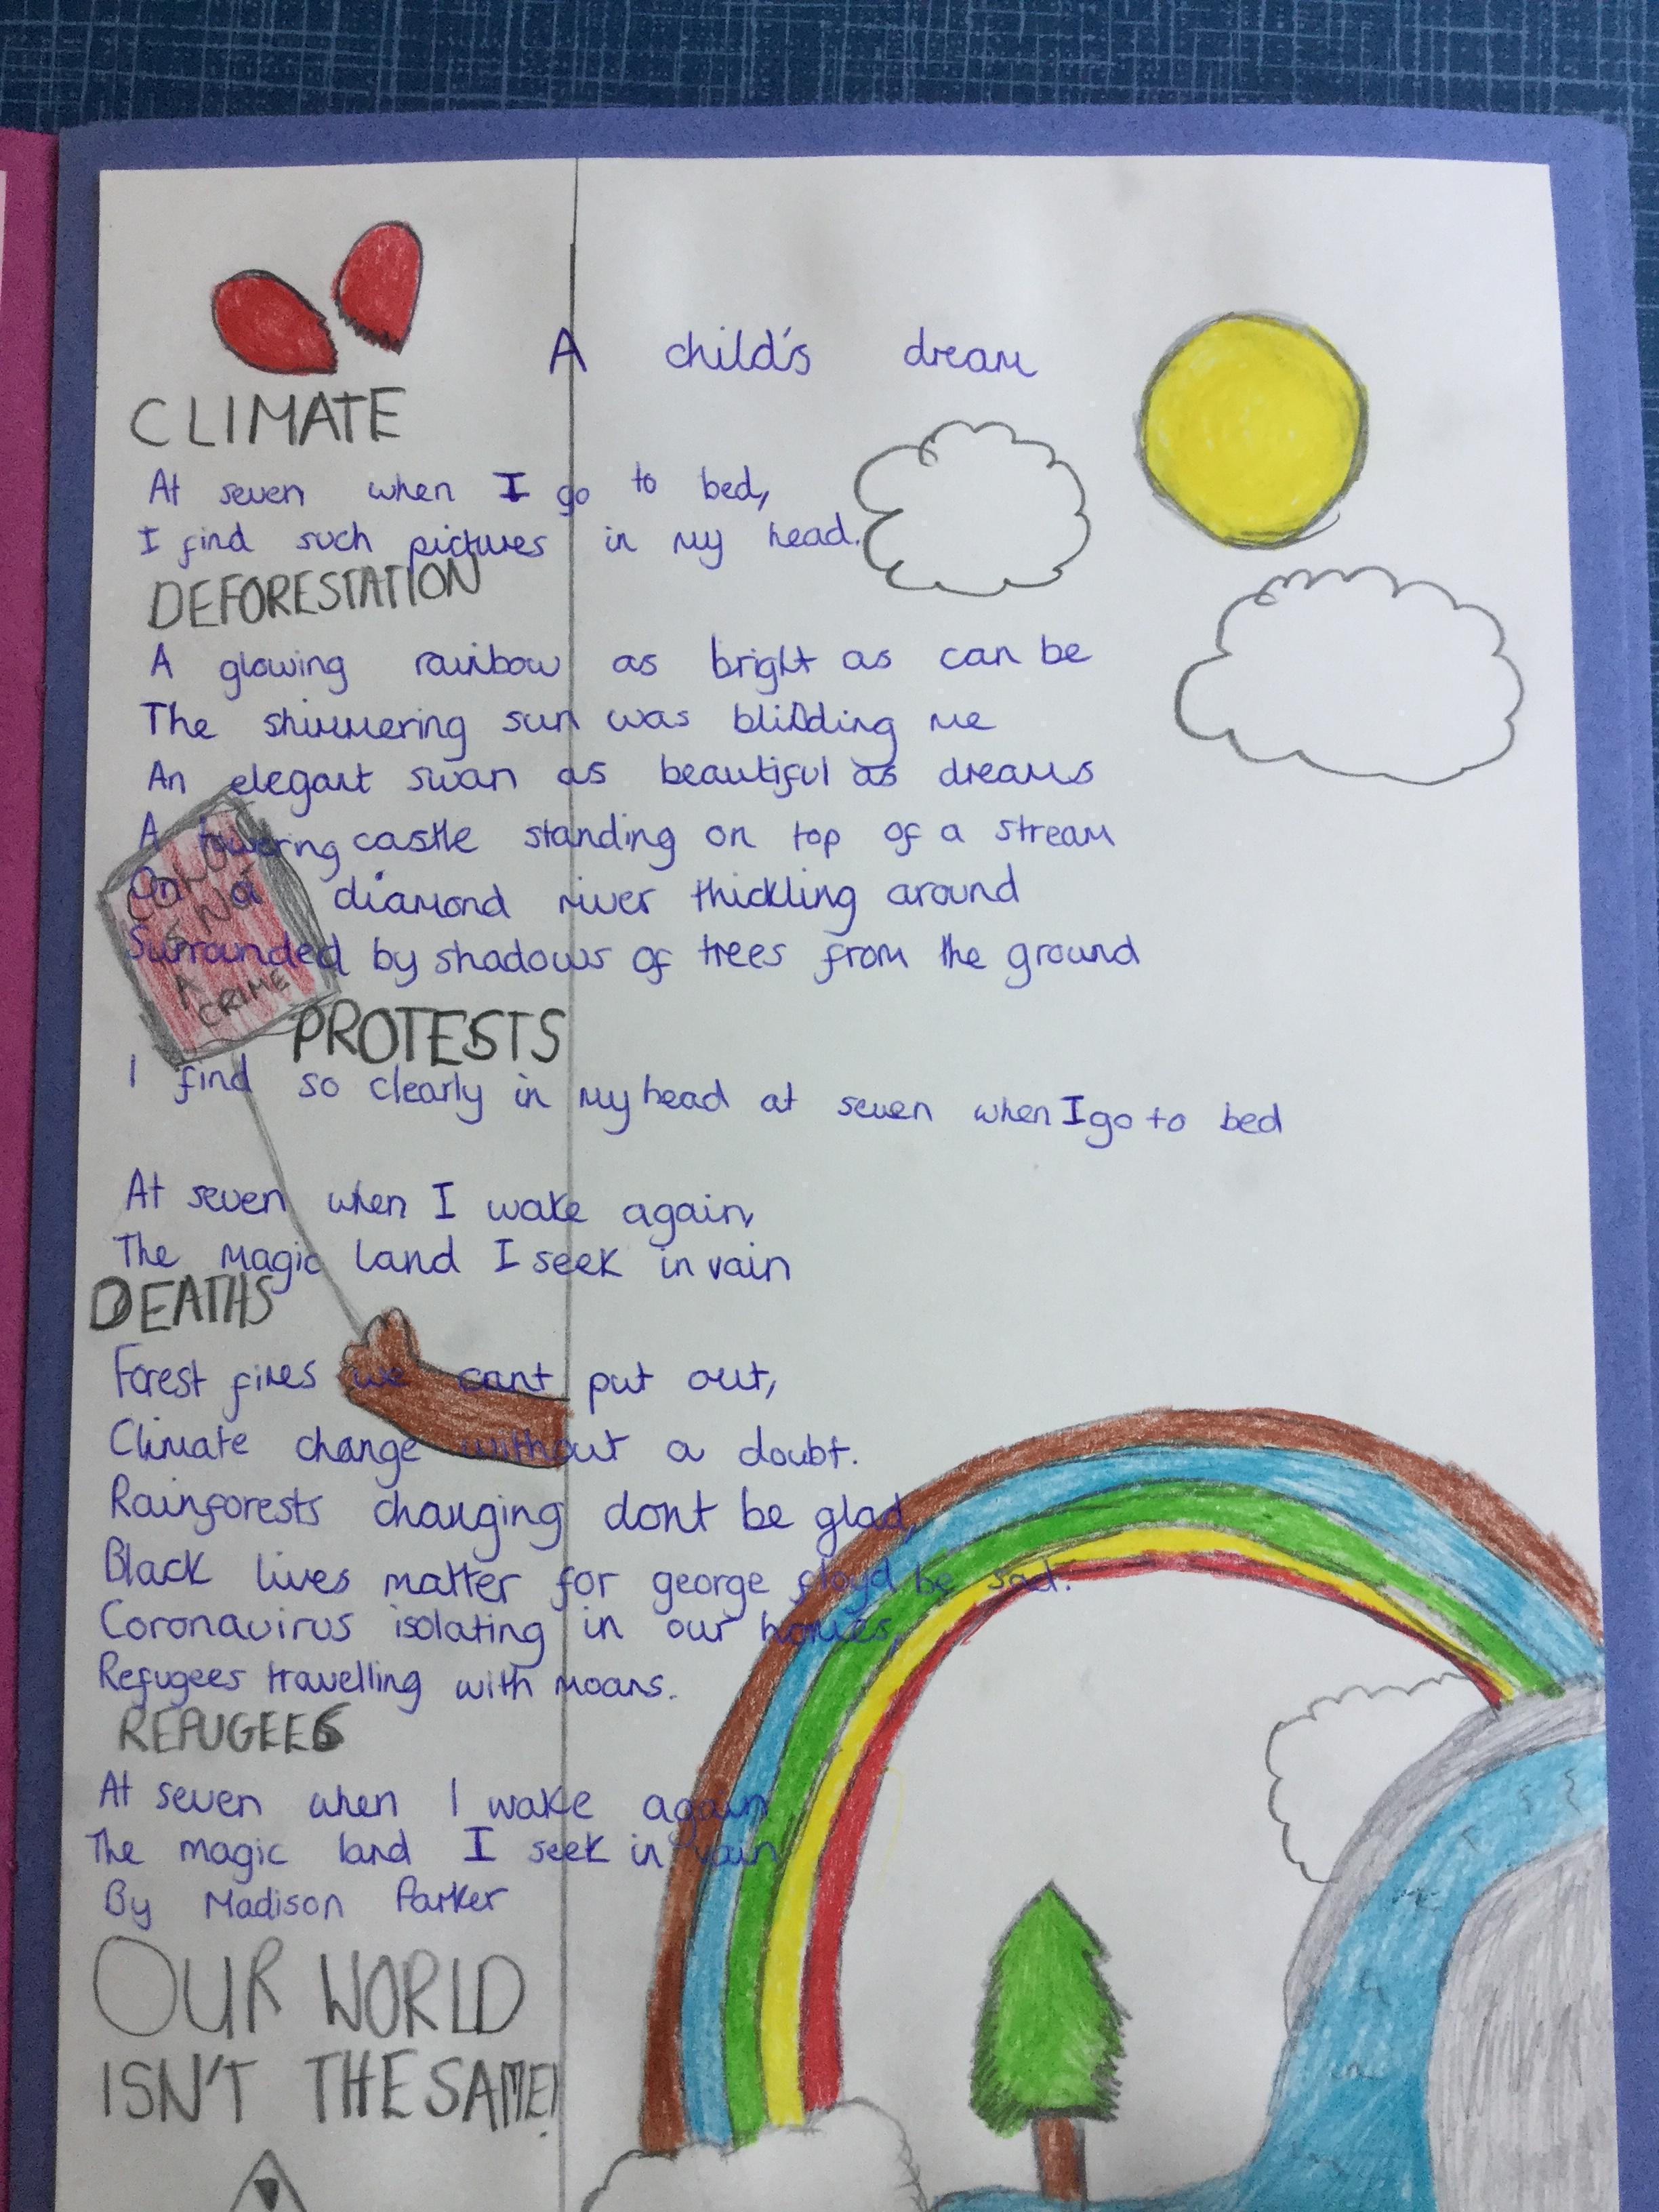 A child's dream
CLIMATE
At seven when I go to bed,
I find such pictures in my head.
DEFORESTATION
A glowing rainbow as bright as can be
The shimmering sun was blinding me
An elegant swan as beautiful as dreams
A towering castle standing on top of a stream
On a diamond river thickling around
Surrounded by shadows of trees from the ground
COLOUR
IS NOT
A
CRIME
PROTESTS
I find so clearly in my head at seven when I go to bed
At seven when I wake again,
The magic land I seek in vain
DEATHS
Forest fires we cant put out,
Climate change without a doubt.
Rainforests changing dont be glad,
Black lives matter for george floyd be sad.
Coronavirus isolating in our homes,
Refugees travelling with moans.
REFUGEES
At seven when I wake again
The magic land I seek in vain
By Madison Parker
OUR WORLD
ISN'T THE SAME!